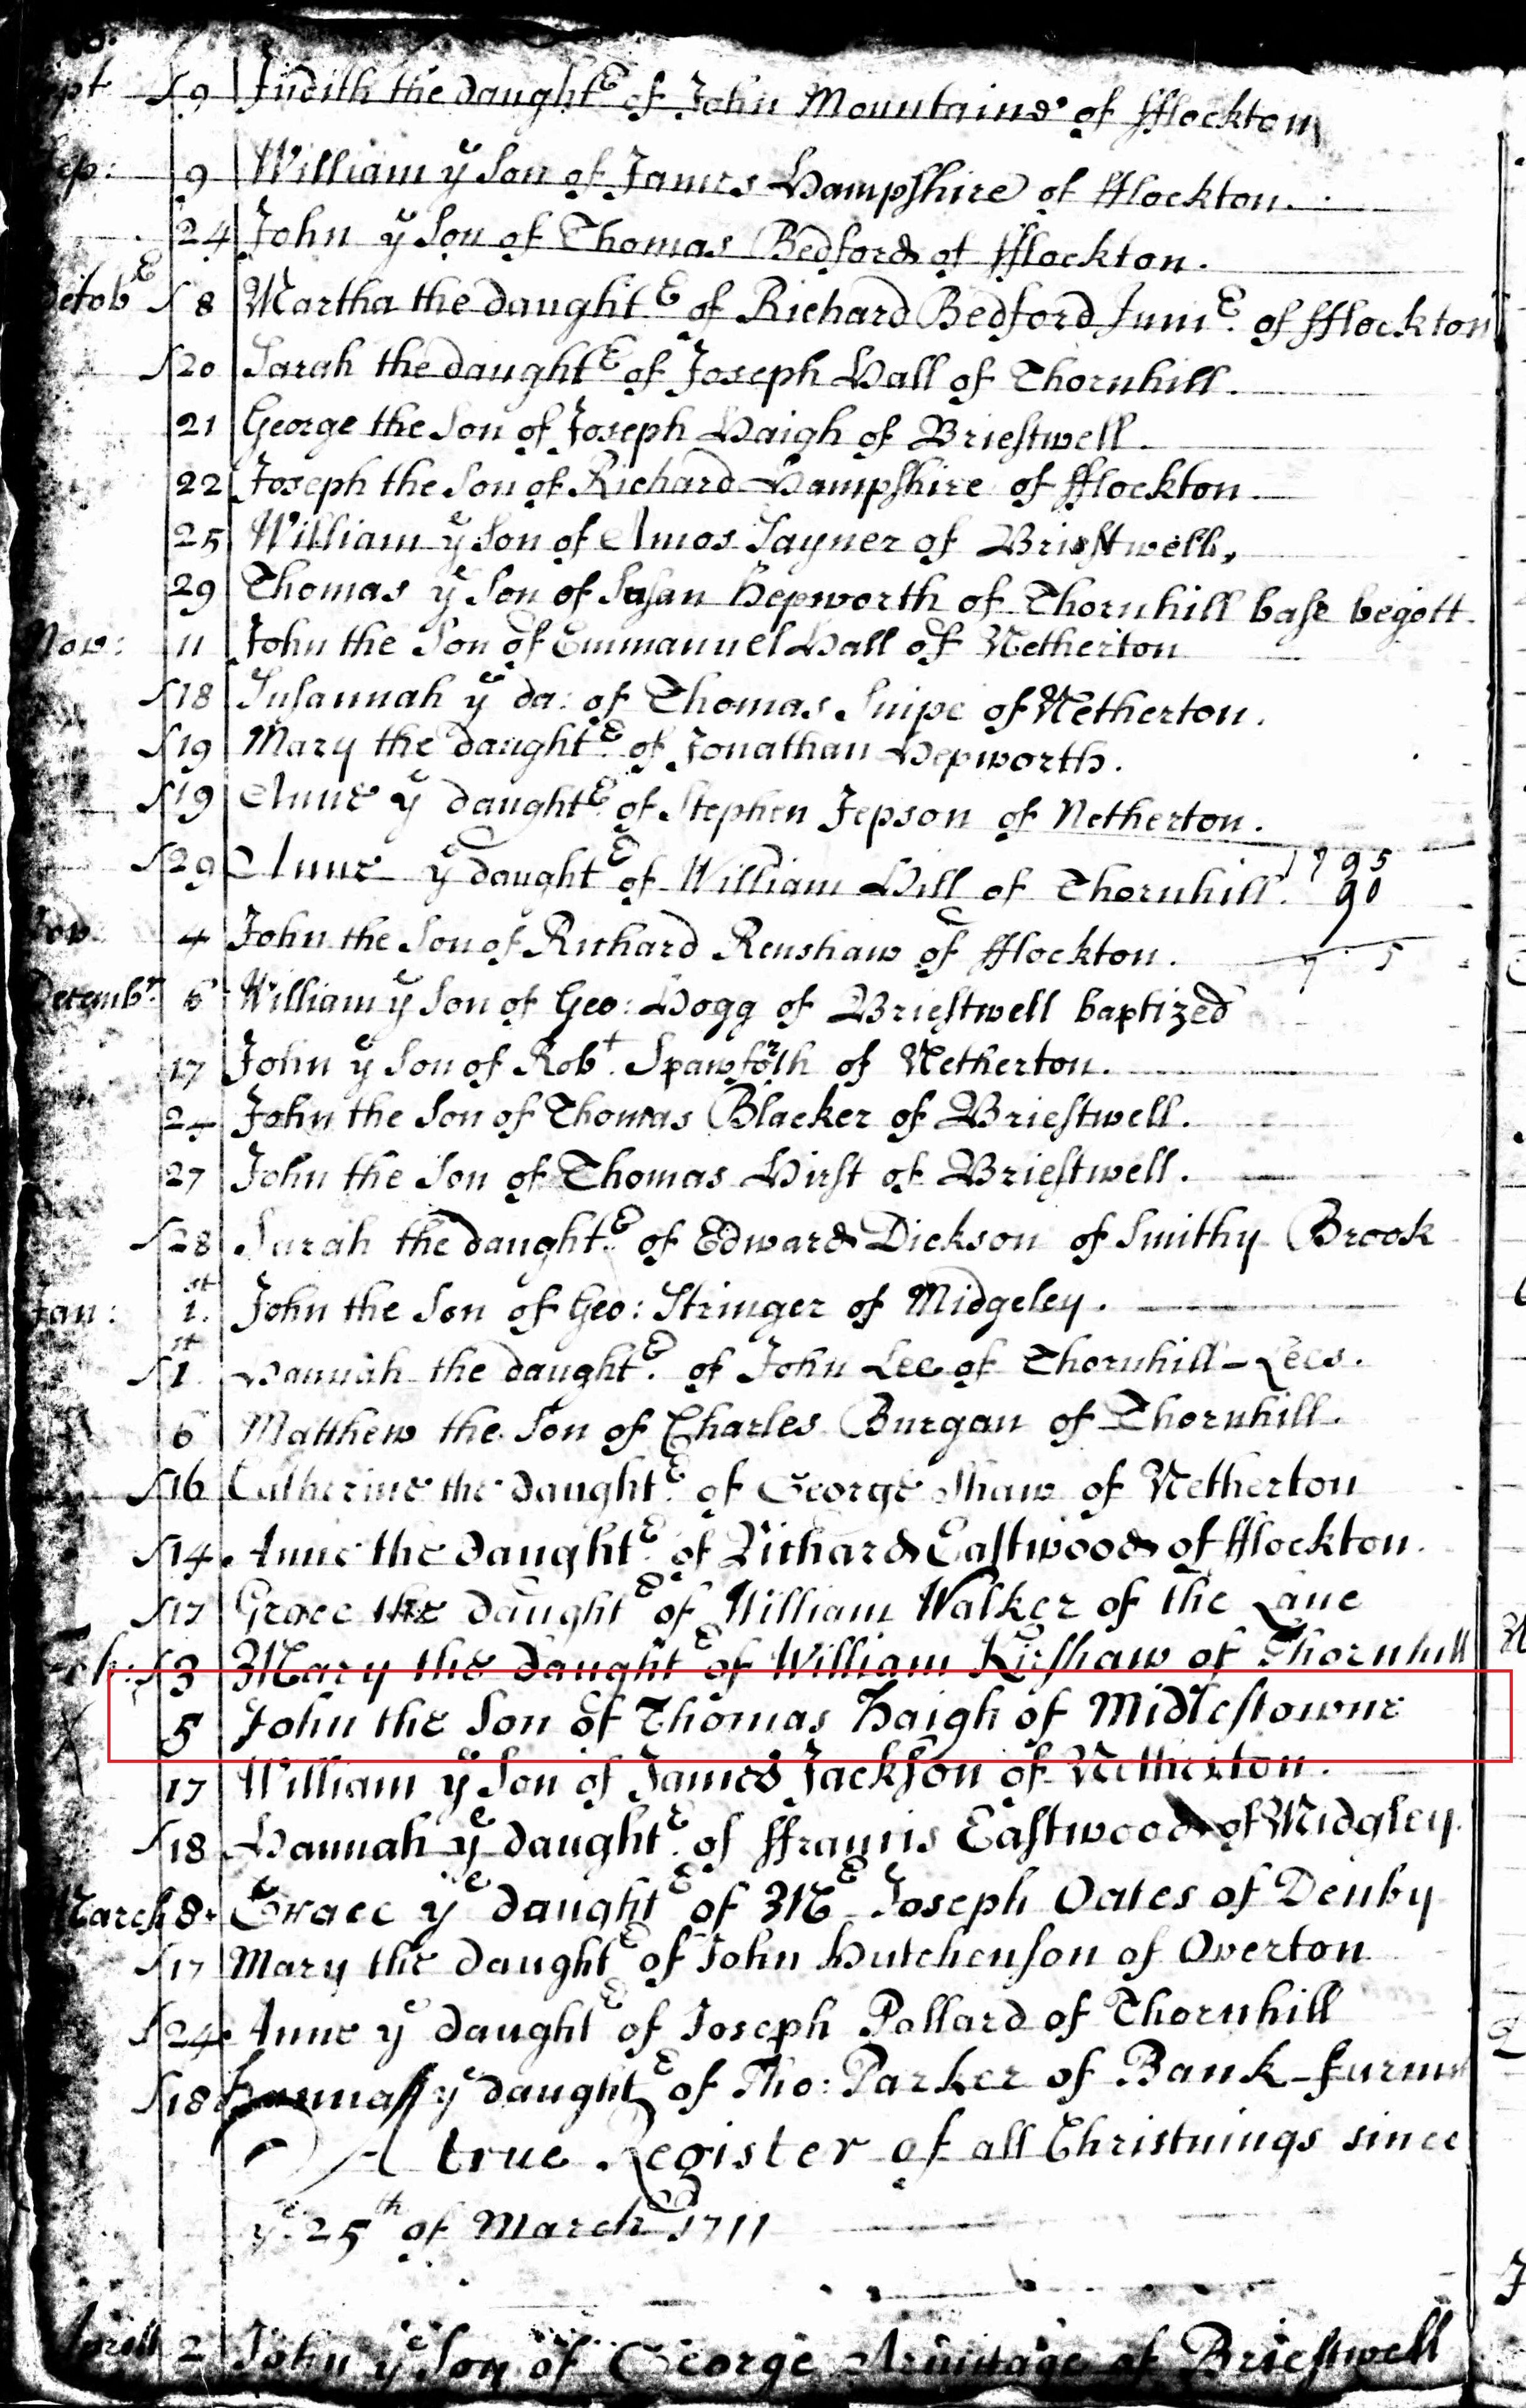 pt 9 Judith the daughtr of John Mountaine of fflockton
ep: 9 William ye Son of James Hampshire of fflockton.
24 John ye Son of Thomas Bedford of fflockton.
ctobr 8 Martha the daughtr of Richard Bedford Junr. of fflockton
20 Sarah the daughtr of Joseph Hall of Thornhill.
21 George the Son of Joseph Haigh of Briestwell.
22 Joseph the Son of Richard Hampshire of fflockton
25 William ye Son of Amos Sayner of Briestwell,
29 Thomas ye Son of Susan Hepworth of Thornhill base begott.
Nov: 11 John the Son of Emmanuel Hall of Netherton
18 Susannah ye da: of Thomas Snipe of Netherton.
19 Mary the daughtr. of Jonathan Hepworth.
19 Anne ye daughtr. of Stephen Jepson of Netherton.
29 Anne ye daughtr of William Hill of Thornhill. 1795
90
ov 4 John the Son of Richard Renshaw of fflockton. 7 5
Decembr. 6 William ye Son of Geo: Hogg of Briestwell baptized
17 John ye Son of Robt. Spawforth of Netherton.
24 John the Son of Thomas Blacker of Briestwell.
27 John the Son of Thomas Hirst of Briestwell.
28 Sarah the daughtr. of Edward Dickson of Smithy Brook
Jan: 1st. John the Son of Geo: Stringer of Midgeley.
1st Hannah the daughtr. of John Lee of Thornhill-Lees.
6 Matthew the Son of Charles Burgan of Thornhill.
16 Catherine the daughtr. of George Shaw of Netherton
14. Anne the daughtr. of Richard Eastwood of fflockton.
17 Grace the daughtr of William Walker of the Lane
3 Mary the daughtr of William Kirshaw of Thornhill
5 John the Son of Thomas Haigh of Midlestowne
17 William ye Son of James Jackson of Netherton.
18 Hannah ye daughtr. of ffrancis Eastwood of Midgley.
March 8. Grace ye daughtr of Mr Joseph Oates of Denby
17 Mary the daughtr of John Hutchenson of Overton
24. Anne ye daughtr of Joseph Pollard of Thornhill
18 ye daughtr of Tho: Parker of Bank-furn
A true Register of all Christnings since
ye. 25th of March 1711
prill 2 John ye Son of George Armitage of Briestwell